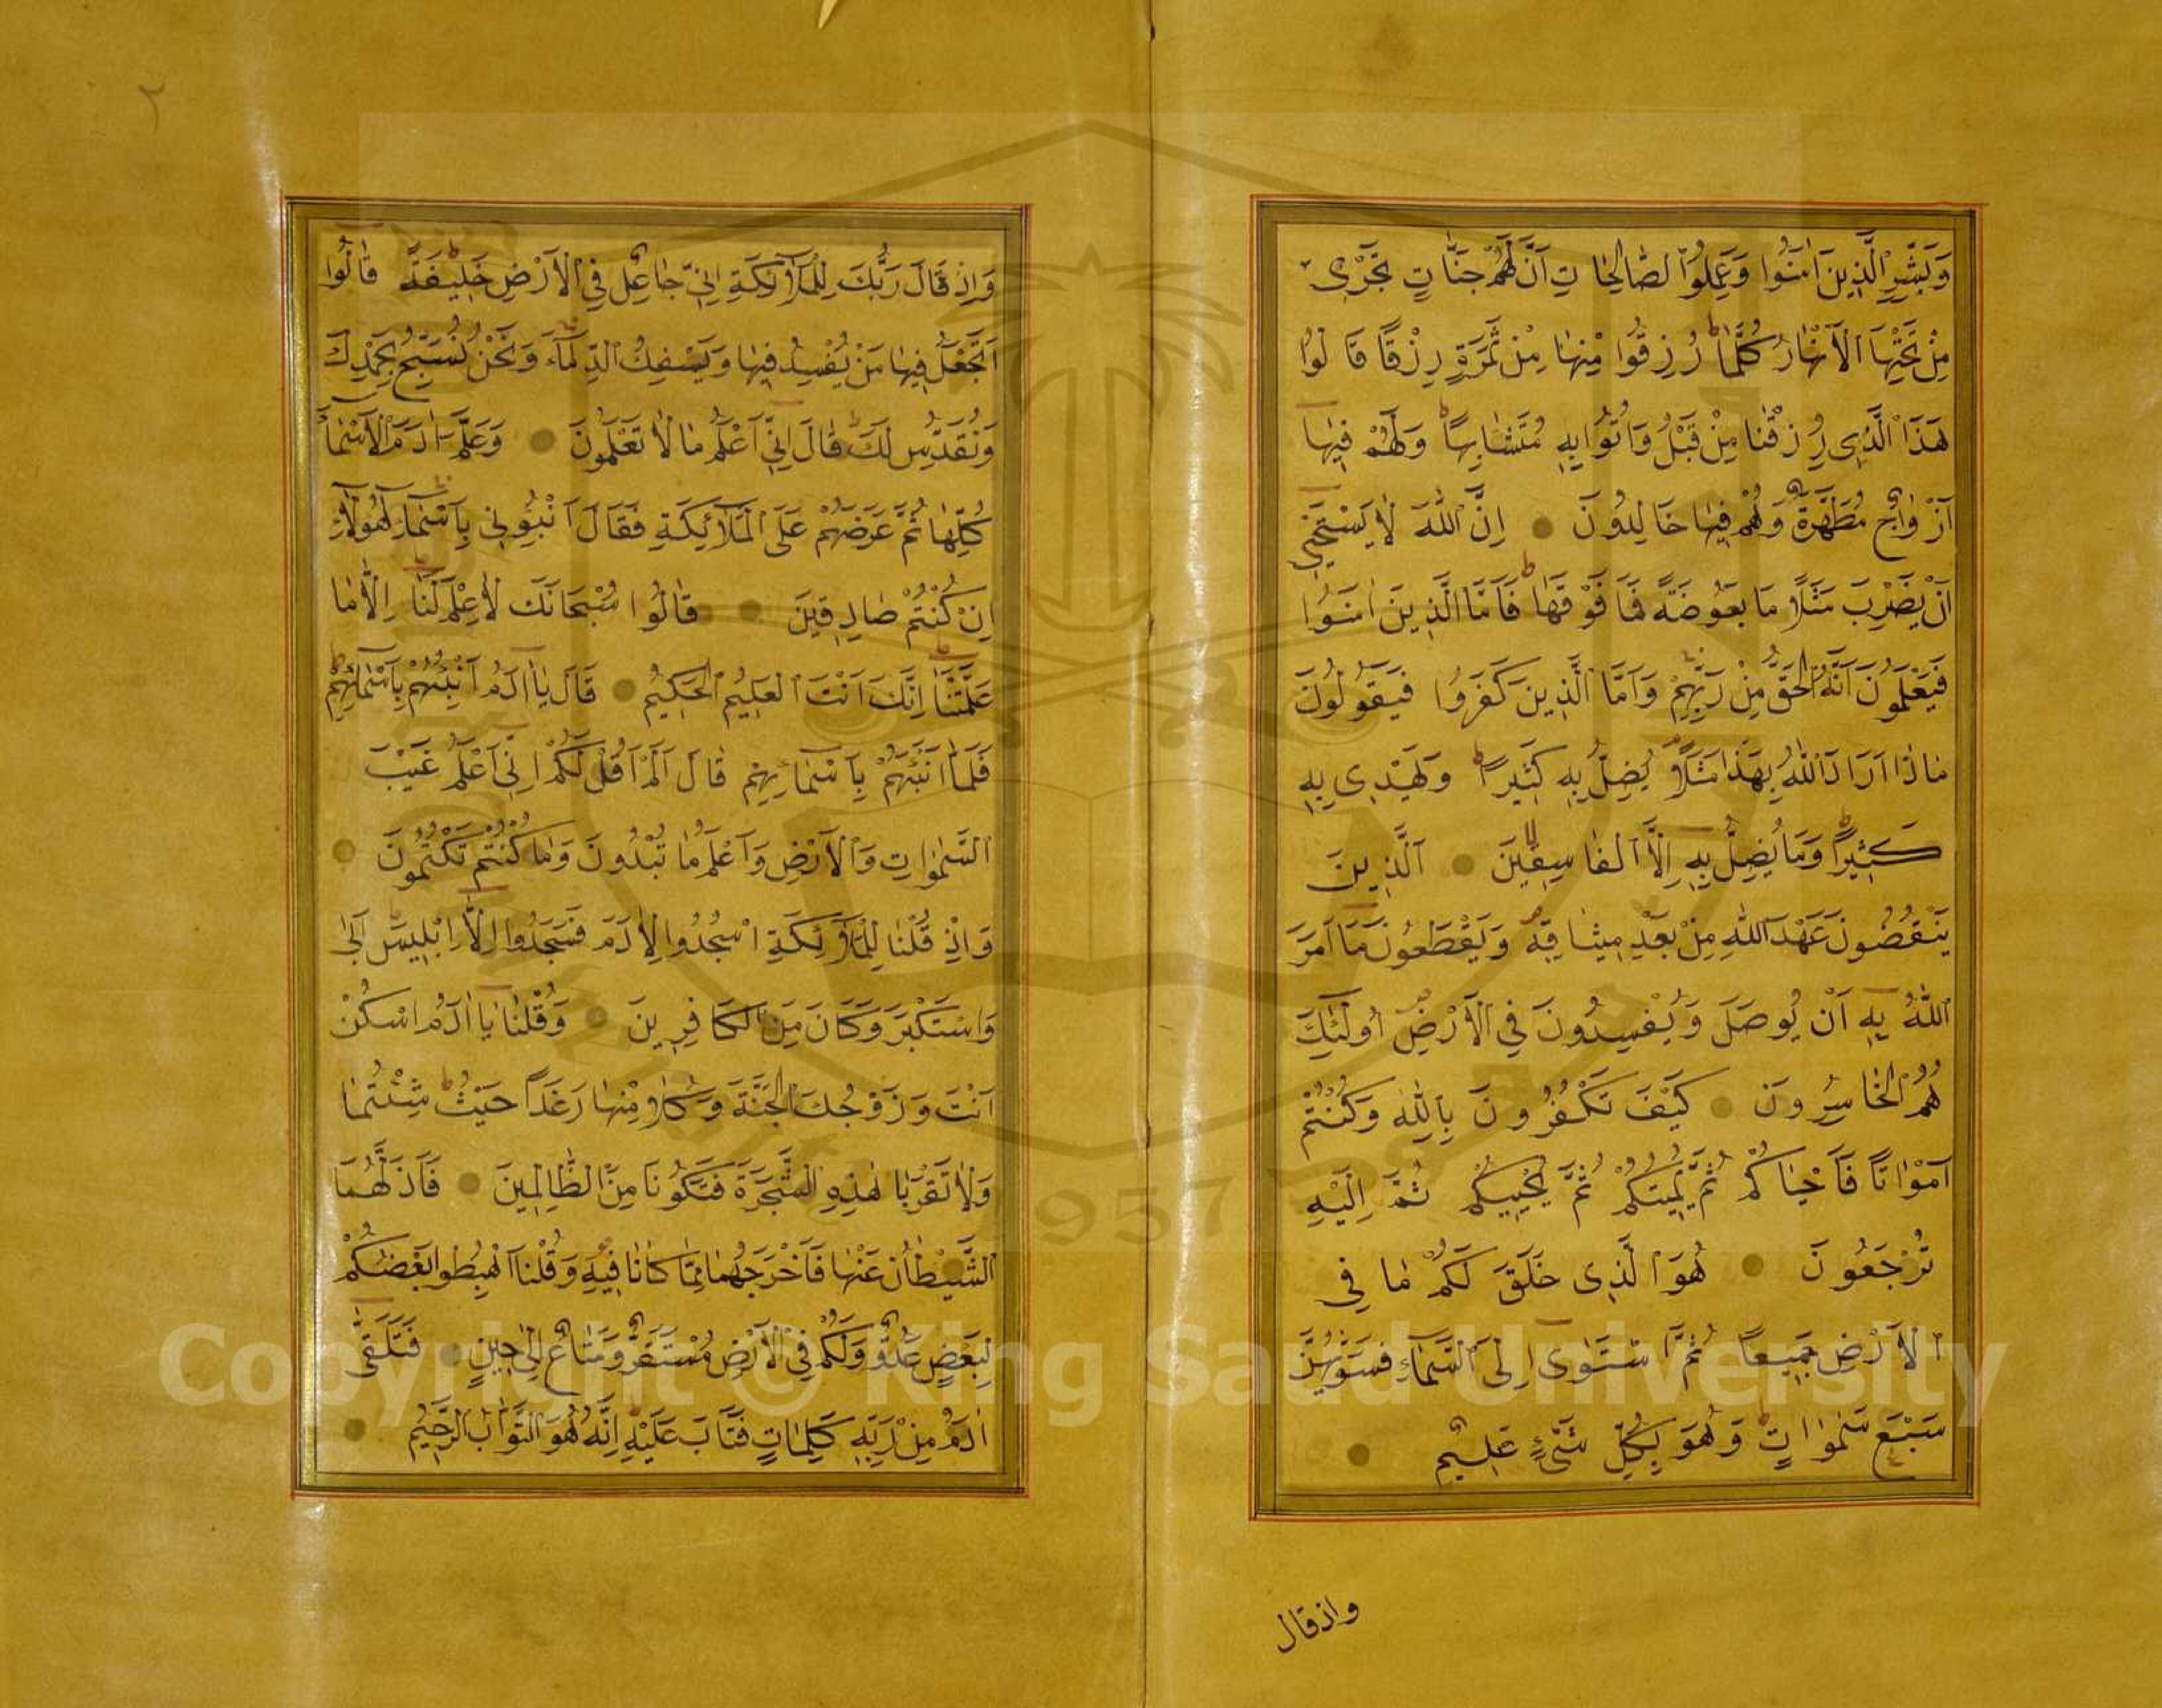 وَبَشِّرِ الَّذِينَ اٰمَنُوا وَعَمِلُوا الصَّالِحَاتِ اَنَّ لَهُمْ جَنَّاتٍ تَجْرِى
مِنْ تَحْتِهَا الْاَنْهَارُ كُلَّمَا رُزِقُوا مِنْهَا مِنْ ثَمَرَةٍ رِزْقًا قَالُوا
هَذَا الَّذِى رُزِقْنَا مِنْ قَبْلُ وَاُتُوا بِهِ مُتَشَابِهًا وَلَهُمْ فِيهَا
اَزْوَاجٌ مُطَهَّرَةٌ وَهُمْ فِيهَا خَالِدُونَ اِنَّ اللّٰهَ لَا يَسْتَحْيِى
اَنْ يَضْرِبَ مَثَلًا مَا بَعُوضَةً فَمَا فَوْقَهَا فَاَمَّا الَّذِينَ اٰمَنُوا
فَيَعْلَمُونَ اَنَّهُ الْحَقُّ مِنْ رَبِّهِمْ وَاَمَّا الَّذِينَ كَفَرُوا فَيَقُولُونَ
مَاذَا اَرَادَ اللّٰهُ بِهَذَا مَثَلًا يُضِلُّ بِهِ كَثِيرًا وَيَهْدِى بِهِ
كَثِيرًا وَمَا يُضِلُّ بِهِ اِلَّا الْفَاسِقِينَ اَلَّذِينَ
يَنْقُضُونَ عَهْدَ اللّٰهِ مِنْ بَعْدِ مِيثَاقِهِ وَيَقْطَعُونَ مَا اَمَرَ
اللّٰهُ بِهِ اَنْ يُوصَلَ وَيُفْسِدُونَ فِي الْاَرْضِ اُولَئِكَ
هُمُ الْخَاسِرُونَ كَيْفَ تَكْفُرُونَ بِاللّٰهِ وَكُنْتُمْ
اَمْوَاتًا فَاَحْيَاكُمْ ثُمَّ يُمِيتُكُمْ ثُمَّ يُحْيِيكُمْ ثُمَّ اِلَيْهِ
تُرْجَعُونَ هُوَ الَّذِى خَلَقَ لَكُمْ مَا فِى
الْاَرْضِ جَمِيعًا ثُمَّ اسْتَوٰى اِلَى السَّمَاءِ فَسَوّٰيهُنَّ
سَبْعَ سَمٰوَاتٍ وَهُوَ بِكُلِّ شَىْءٍ عَلِيمٌ
واذ قال
٢
وَاِذْ قَالَ رَبُّكَ لِلْمَلَائِكَةِ اِنِّى جَاعِلٌ فِى الْاَرْضِ خَلِيفَةً قَالُوا
اَتَجْعَلُ فِيهَا مَنْ يُفْسِدُ فِيهَا وَيَسْفِكُ الدِّمَاءَ وَنَحْنُ نُسَبِّحُ بِحَمْدِكَ
وَنُقَدِّسُ لَكَ قَالَ اِنِّى اَعْلَمُ مَا لَا تَعْلَمُونَ وَعَلَّمَ اٰدَمَ الْاَسْمَاءَ
كُلَّهَا ثُمَّ عَرَضَهُمْ عَلَى الْمَلَائِكَةِ فَقَالَ اَنْبِئُونِى بِاَسْمَاءِ هٰؤُلَاءِ
اِنْ كُنْتُمْ صَادِقِينَ قَالُوا سُبْحَانَكَ لَا عِلْمَ لَنَا اِلَّا مَا
عَلَّمْتَنَا اِنَّكَ اَنْتَ الْعَلِيمُ الْحَكِيمُ قَالَ يَا اٰدَمُ اَنْبِئْهُمْ بِاَسْمَائِهِمْ
فَلَمَّا اَنْبَئَهُمْ بِاَسْمَائِهِمْ قَالَ اَلَمْ اَقُلْ لَكُمْ اِنِّى اَعْلَمُ غَيْبَ
السَّمٰوَاتِ وَالْاَرْضِ وَاَعْلَمُ مَا تُبْدُونَ وَمَا كُنْتُمْ تَكْتُمُونَ
وَاِذْ قُلْنَا لِلْمَلَائِكَةِ اسْجُدُوا لِاٰدَمَ فَسَجَدُوا اِلَّا اِبْلِيسَ اَبٰى
وَاسْتَكْبَرَ وَكَانَ مِنَ الْكَافِرِينَ وَقُلْنَا يَا اٰدَمُ اسْكُنْ
اَنْتَ وَزَوْجُكَ الْجَنَّةَ وَكُلَا مِنْهَا رَغَدًا حَيْثُ شِئْتُمَا
وَلَا تَقْرَبَا هٰذِهِ الشَّجَرَةَ فَتَكُونَا مِنَ الظَّالِمِينَ فَاَزَلَّهُمَا
الشَّيْطَانُ عَنْهَا فَاَخْرَجَهُمَا مِمَّا كَانَا فِيهِ وَقُلْنَا اهْبِطُوا بَعْضُكُمْ
لِبَعْضٍ عَدُوٌّ وَلَكُمْ فِى الْاَرْضِ مُسْتَقَرٌّ وَمَتَاعٌ اِلٰى حِينٍ فَتَلَقّٰى
اٰدَمُ مِنْ رَبِّهِ كَلِمَاتٍ فَتَابَ عَلَيْهِ اِنَّهُ هُوَ التَّوَّابُ الرَّحِيمُ
1957
Copyright © King Saud University